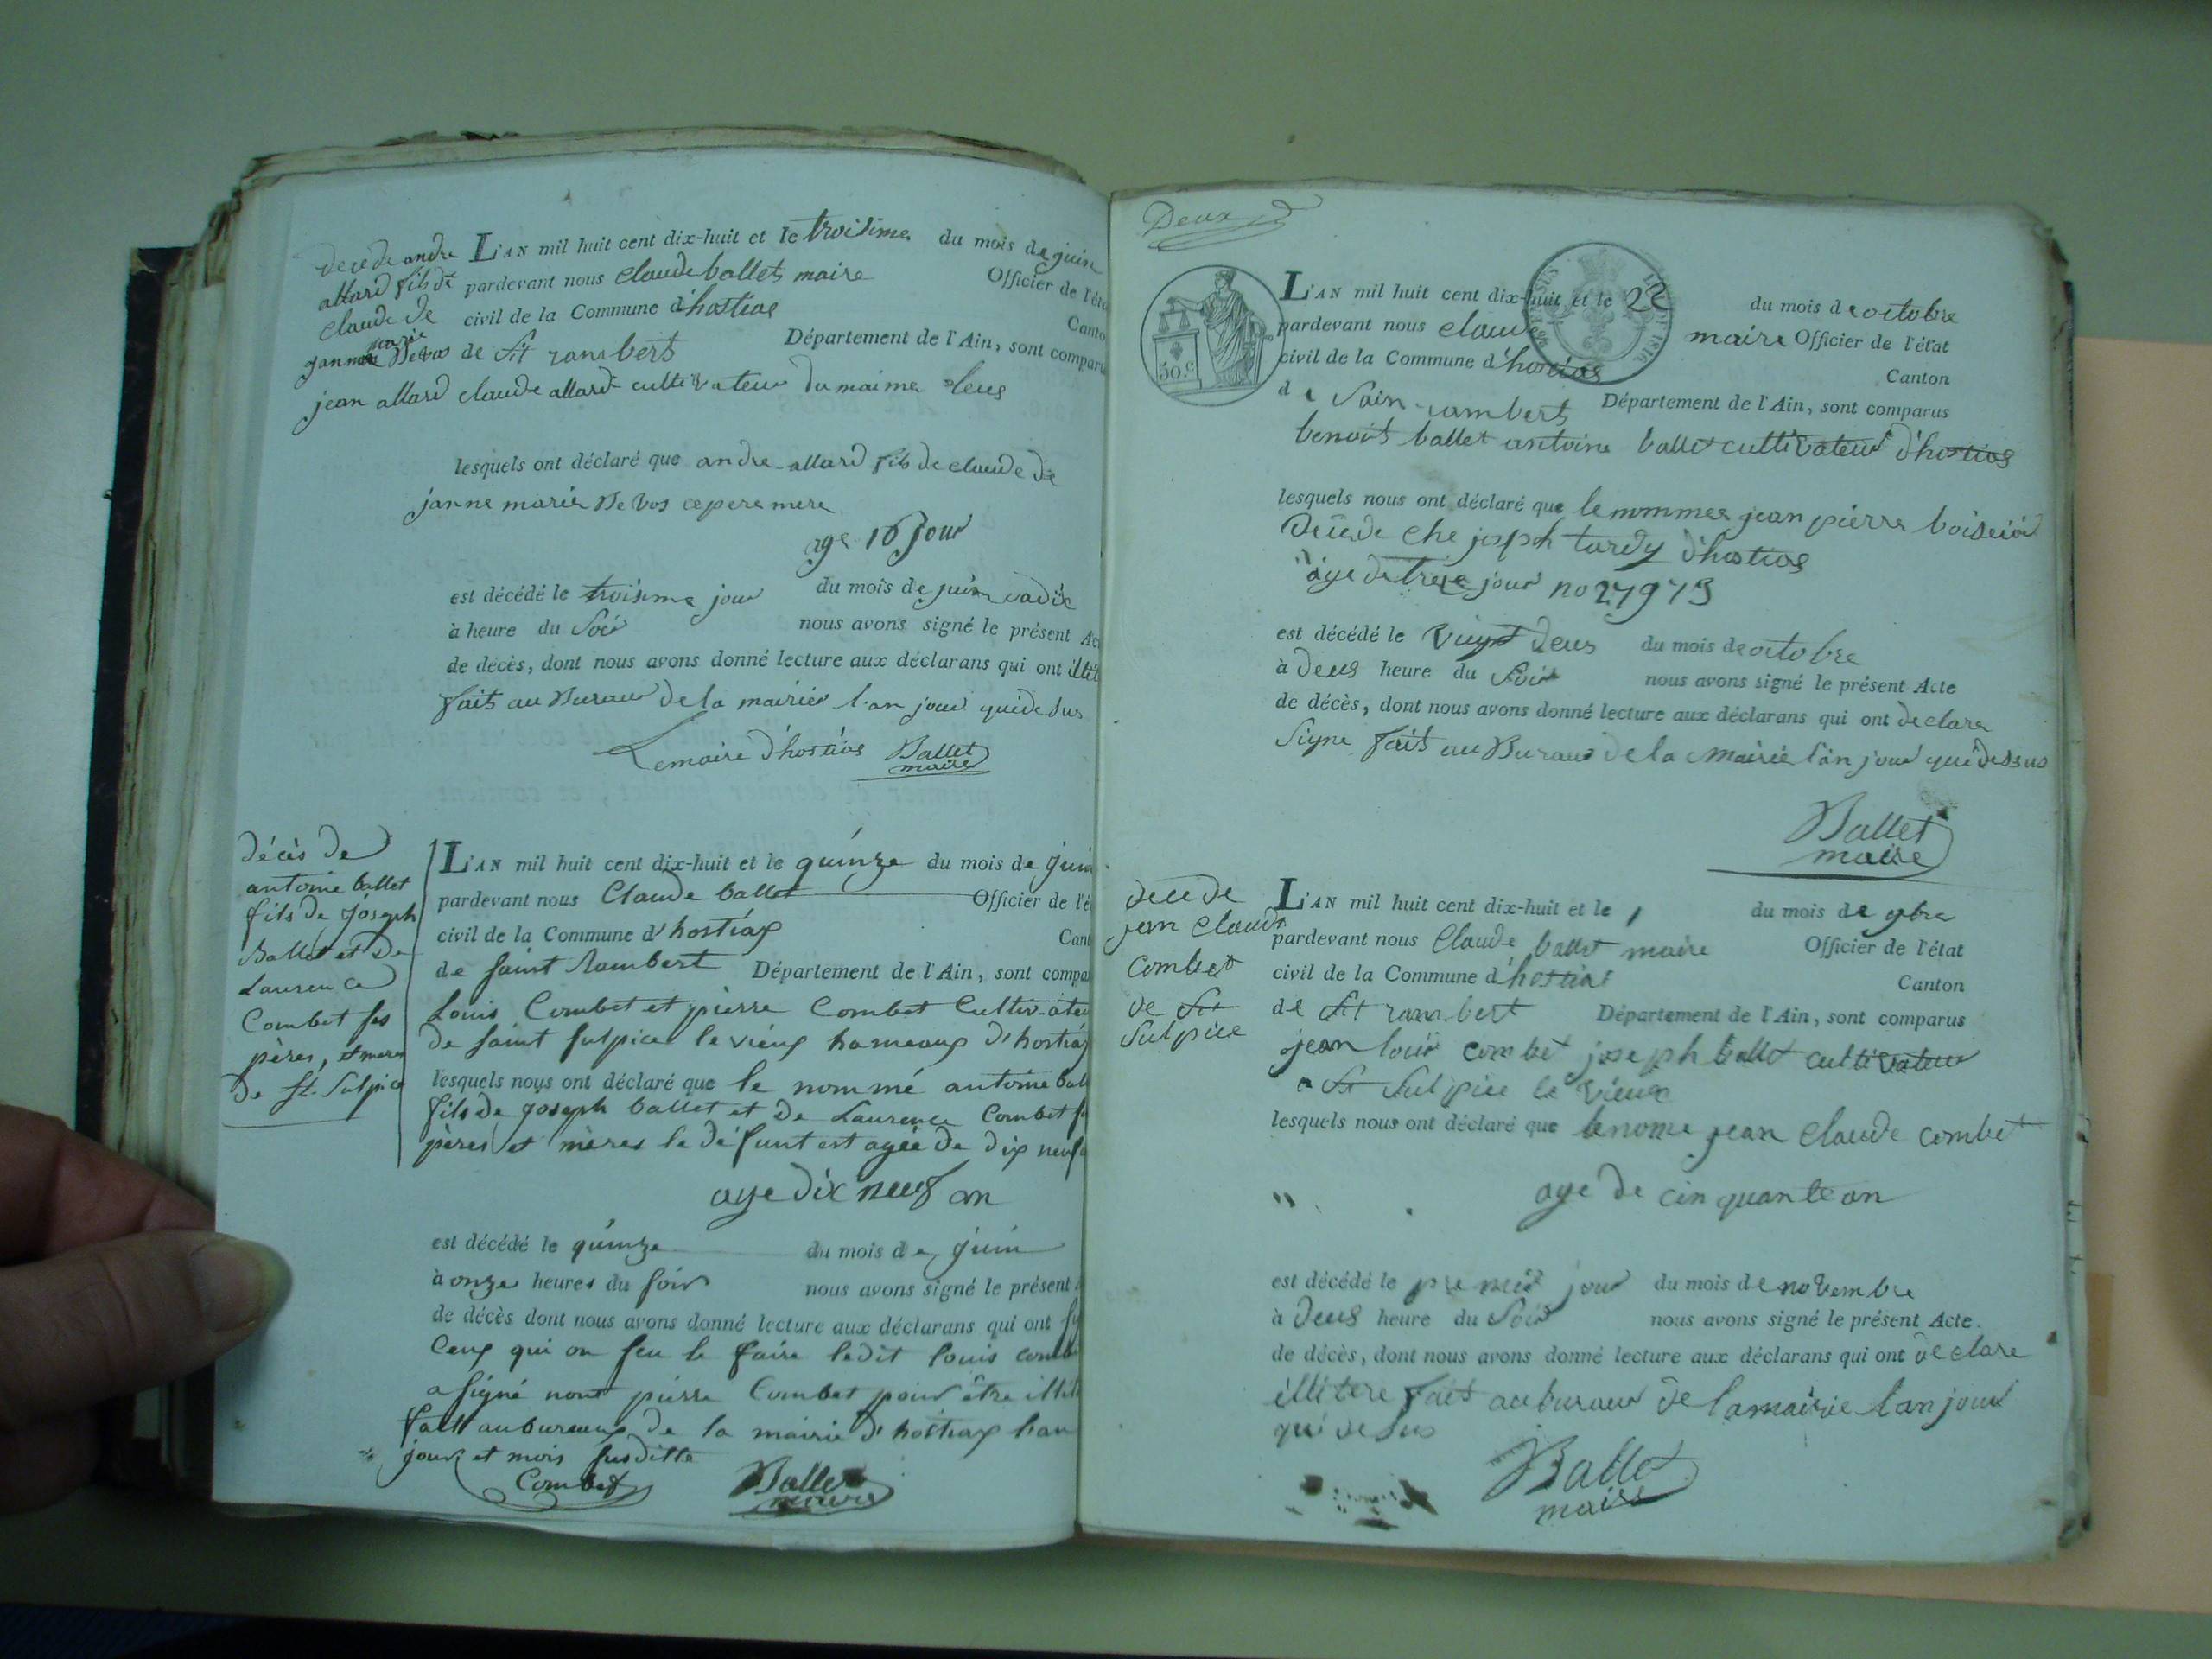 decede andre
allard fils de
claude de
janne marie Devos
L'AN mil huit cent dix-huit et le troisime du mois de juin
pardevant nous claude ballet maire Officier de l'éta
civil de la Commune d'hostias Canto
de St rambert Département de l'Ain, sont comparu
jean allard claude allard cultivateur du maime leus
lesquels ont déclaré que andre allard fils de claude de
janne marie De vos ce pere mere
age 16 jour
est décédé le troisime jour du mois de juin
à heure du Soir nous avons signé le présent Ac
de décès, dont nous avons donné lecture aux déclarans qui ont
fait au Bureau de la mairie l'an jour qui de sus
Le maire d'hostias Ballet
maire
décès de
antoine ballet
fils de joseph
Ballet et de
Laurence
Combet ses
pères, et meres
de St. Sulpice
L'AN mil huit cent dix-huit et le quinze du mois de juin
pardevant nous Claude ballet Officier de l'é
civil de la Commune d'hostiax Cant
de saint Rambert Département de l'Ain, sont compa
Louis Combet et pierre Combet Cultivateu
de saint sulpice le vieux hameaux d'hostiax
lesquels nous ont déclaré que le nommé antoine ball
fils de joseph ballet et de Laurence Combet s
pères et mères le défunt est agée de dix neuf
age dix neuf an
est décédé le quinze du mois de juin
à onze heures du soir nous avons signé le présent
de décès dont nous avons donné lecture aux déclarans qui ont
Ceux qui on seu le faire ledit louis comb
a signé nont pierre Combet pour être illit
fait au bureaux de la mairie d'hostiax lan
jour et mois susditte
Combet Ballet
maire
Deux
50 c.
L'AN mil huit cent dix-huit et le 22 du mois de octobre
pardevant nous claude maire Officier de l'état
civil de la Commune d'hostias Canton
de Sain rambert Département de l'Ain, sont comparus
benoit ballet antoine ballet cultivateur d'hostias
lesquels nous ont déclaré que le nommer jean pierre
Décéde che joseph tardy d'hostias
age de treize jour no 27973
est décédé le vingt deus du mois de octobre
à deus heure du Soir nous avons signé le présent Acte
de décès, dont nous avons donné lecture aux déclarans qui ont declare
Signe fait au Bureau de la Mairie l'an jour qui dessus
Ballet
maire
decede
jean claude
combet
de St
Sulpice
L'AN mil huit cent dix-huit et le 1 du mois de 9bre
pardevant nous Claude ballet maire Officier de l'état
civil de la Commune d'hostias Canton
de St rambert Département de l'Ain, sont comparus
jean louis combet joseph ballet cultivateur
a St Sulpice le vieux
lesquels nous ont déclaré que le nome jean claude combet
age de cinquante an
est décédé le premier jour du mois de novembre
à Deus heure du Soir nous avons signé le présent Acte.
de décès, dont nous avons donné lecture aux déclarans qui ont declare
illitere fait au bureau de la mairie lan jour
qui de sus
Ballet
maire